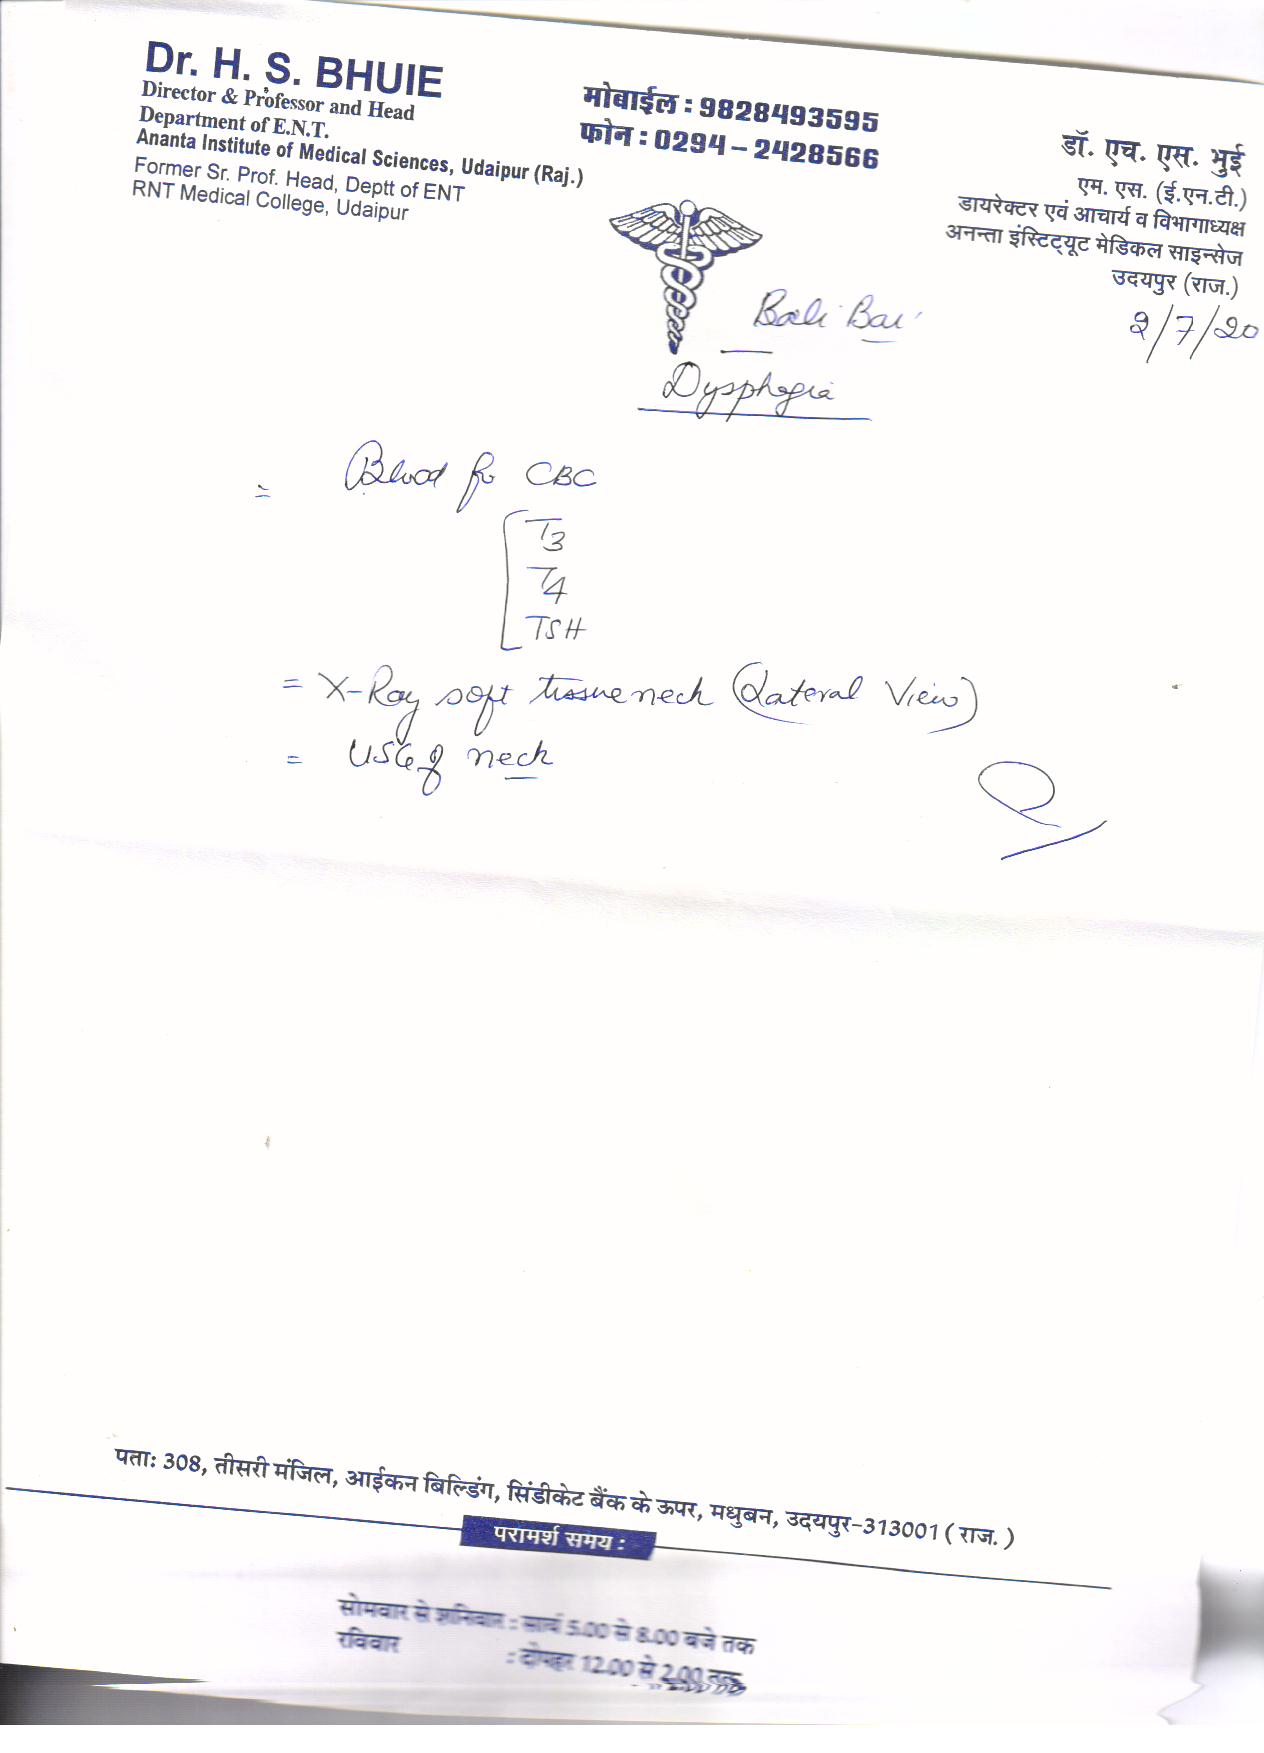 Dr. H. S. BHUIE
Director & Professor and Head
Department of E.N.T.
Ananta Institute of Medical Sciences, Udaipur (Raj.)
Former Sr. Prof. Head, Deptt of ENT
RNT Medical College, Udaipur
मोबाईल : 9828493595
फोन : 0294 – 2428566
डॉ. एच. एस. भुई
एम. एस. (ई.एन.टी.)
डायरेक्टर एवं आचार्य व विभागाध्यक्ष
अनन्ता इंस्टिट्यूट मेडिकल साइन्सेज
उदयपुर (राज.)
2/7/20
Bali Bai
Dysphagia
= Blood for CBC
T3
T4
TSH
= X-Ray soft tissue neck (Lateral View)
= USG of neck
पताः 308, तीसरी मंजिल, आईकन बिल्डिंग, सिंडीकेट बैंक के ऊपर, मधुबन, उदयपुर-313001 ( राज. )
परामर्श समय :
सोमवार से शनिवार : सायं 5.00 से 8.00 बजे तक
रविवार : दोपहर 12.00 से 2.00 तक